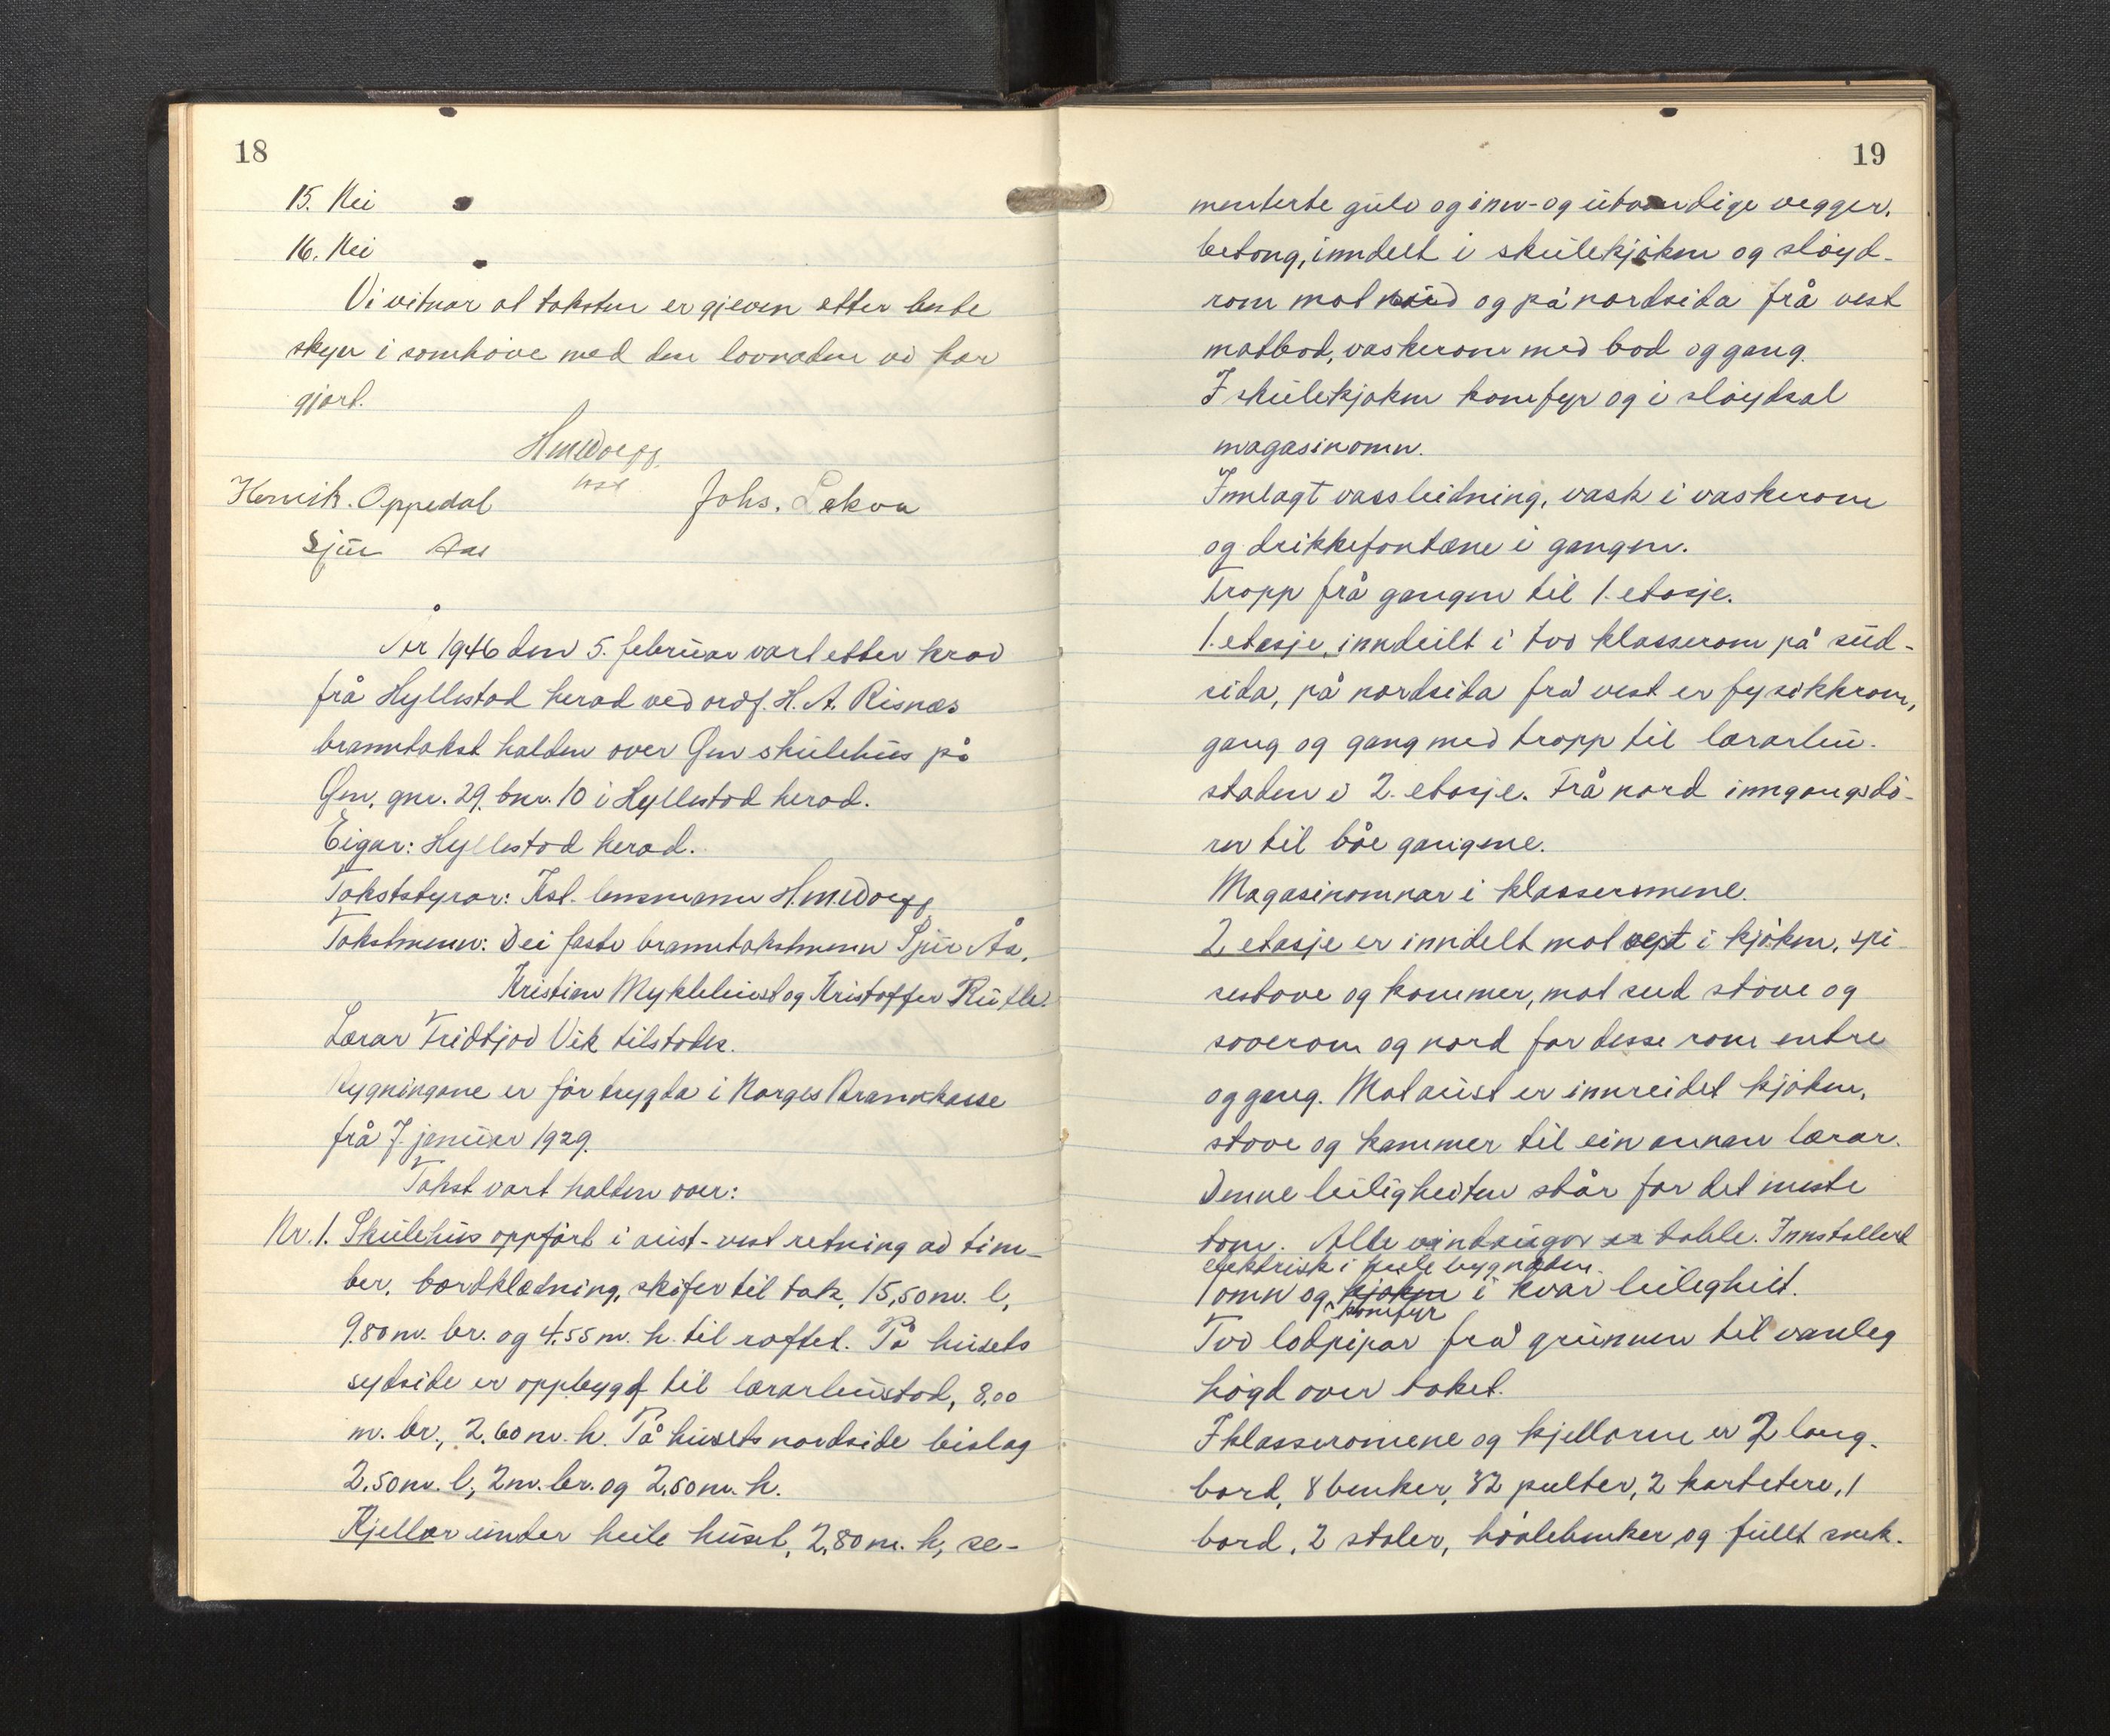 18
15. Nei
16. Nei
Vi vitnar at taksten er gjeven etter beste
skyn i samhøve med den lovnaden vi har
gjort.
Henrik. Oppedal
Johs. Lekva
Sjur Aas
År 1946 den 5. februar vart etter krav
frå Hyllestad herad ved ordf. H. A. Risnes
branntakst halden over Øen skulehus på
Øen, gnr. 29, bnr. 10 i Hyllestad herad.
Eigar: Hyllestad herad.
Takststyrar: Kst. lensmann
Takstmenn: Dei faste branntakstmenn Sjur Ås,
Kristian Myklebust og Kristoffer Rutle.
Lærar Fridtjov Vik tilstades.
Bygningane er før trygda i Norges Brannkasse
frå 7. januar 1929.
Takst vart halden over:
Nr. 1. Skulehus oppført i aust-vest retning av tim-
ber, bordklædning, skifer til tak, 15,50 m. l,
9.80 m. br. og 4.55 m. h. til raftet. På husets
sydside er oppbygd til lærarbustad, 8,00
m. br., 2.60 m. h. På husets nordside bislag
2.50 m. l., 2 m. br. og 2.50 m. h.
Kjellar under heile huset, 2,80 m. h, se-
19
menterte gulv og inn- og utvendige vegger,
betong, inndelt i skulekjøken og sløyd-
rom mot og på nordsida frå vest
matbod, vaskerom med bod og gang.
I skulekjøken komfyr og i sløydsal
magasinomn.
Innlagt vassleidning, vask i vaskerom
og drikkefontæne i gangen.
Tropp frå gangen til 1. etasje.
1. etasje, inndeilt i tvo klasserom på sud-
sida, på nordsida frå vest er fysikkrom,
gang og gang med tropp til lærarbu-
staden i 2. etasje. Frå nord inngangsdø-
rer til båe gangene.
Magasinomnar i klasseromene.
2. etasje er inndelt mot vest i kjøken, spi-
sestove og kammer, mot sud stove og
soverom og nord for desse rom entre
og gang. Mot aust er innreidet kjøken,
stove og kammer til ein annan lærar.
Denne leiligheiten står for det meste
tom. Alle vindaugor er doble. Installert
elektrisk i heile bygnaden.
1 omn og kjøken i kvar leilighet.
komfyr
Tvo lodpipar frå grunnen til vanleg
høgd over taket.
I klasseromene og kjellaren er 2 lang-
bord, 8 benker, 32 pulter, 2 kartetere, 1
bord, 2 stoler, høvlebenker og fullt snek-